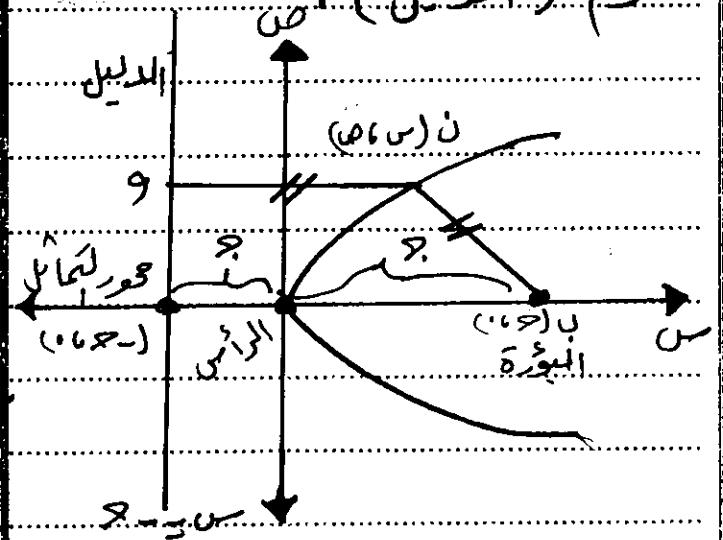 ص
الدليل
ن (س ، ص)
و
جـ
جـ
محور التماثل
(-جـ ، ٠)
الرأس
ب (جـ ، ٠)
البؤرة
س
س = -جـ